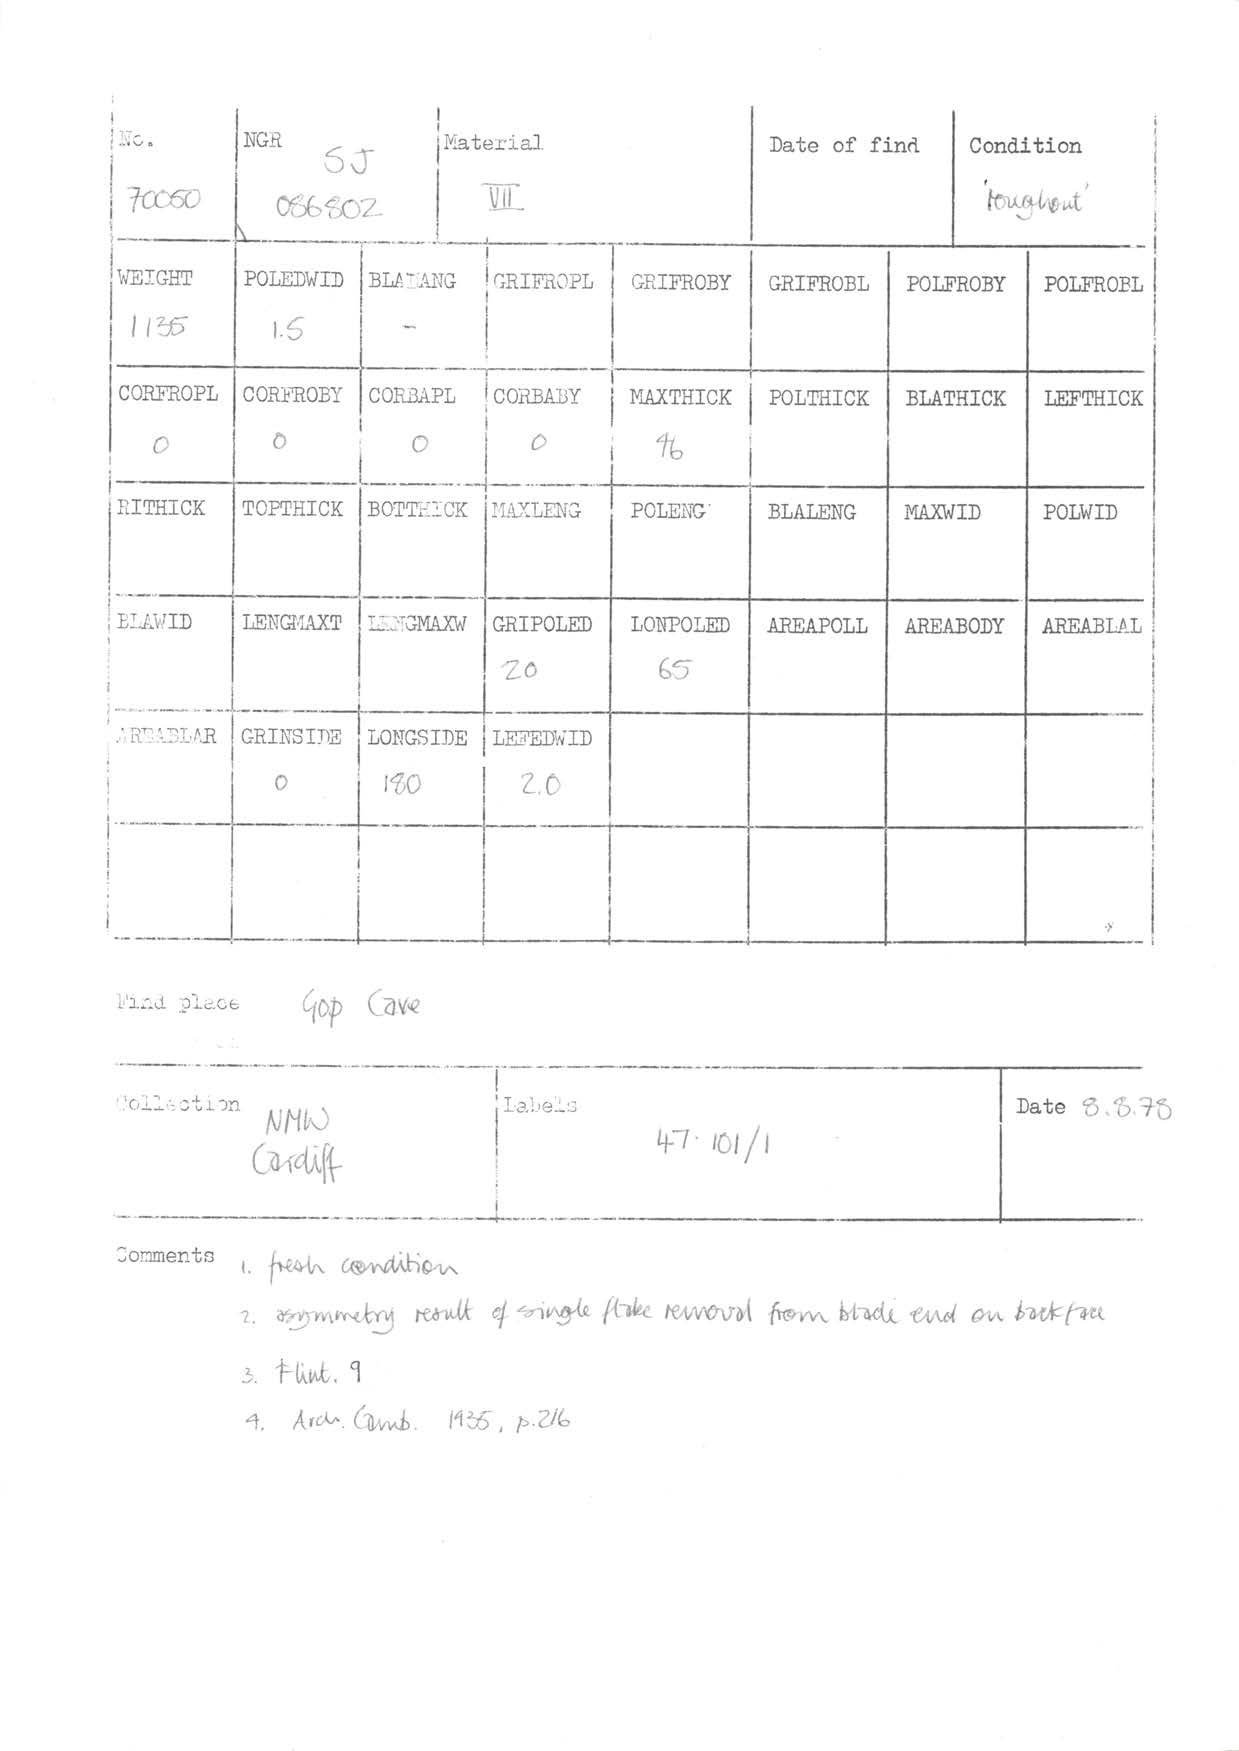 No. NGR Material Date of find Condition
SJ
70050 086802 VII 'roughout'
WEIGHT POLEDWID BLATANG GRIFROPL GRIFROBY GRIFROBL POLFROBY POLFROBL
1135 1.5 -
CORFROPL CORFROBY CORBAPL CORBABY MAXTHICK POLTHICK BLATHICK LEFTHICK
0 0 0 0 46
RITHICK TOPTHICK BOTTHICK MAXLENG POLENG BLALENG MAXWID POLWID
BLAWID LENGMAXT LENGMAXW GRIPOLED LONPOLED AREAPOLL AREABODY AREABLAL
20 65
AREABLAR GRINSIDE LONGSIDE LEFEDWID
0 180 2.0
Find place Gop Cave
Collection Labels Date 8.8.78
NMW 47.101/1
Cardiff
Comments 1. fresh condition
2. asymmetry result of single flake removal from blade end on back face
3. Flint. 9
4. Arch. Camb. 1935, p.216